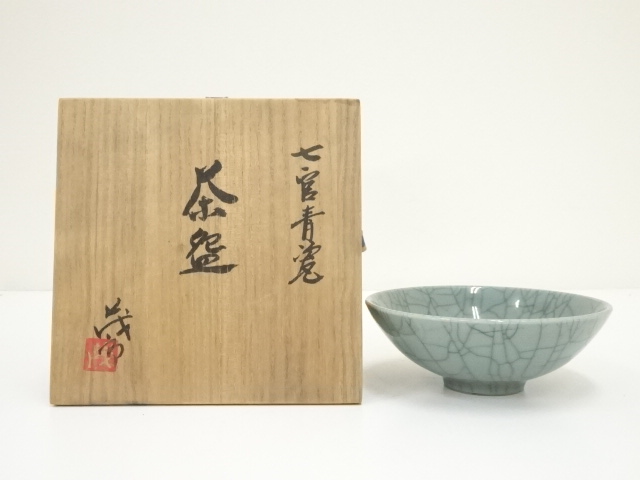 七官青瓷
茶盌
茂